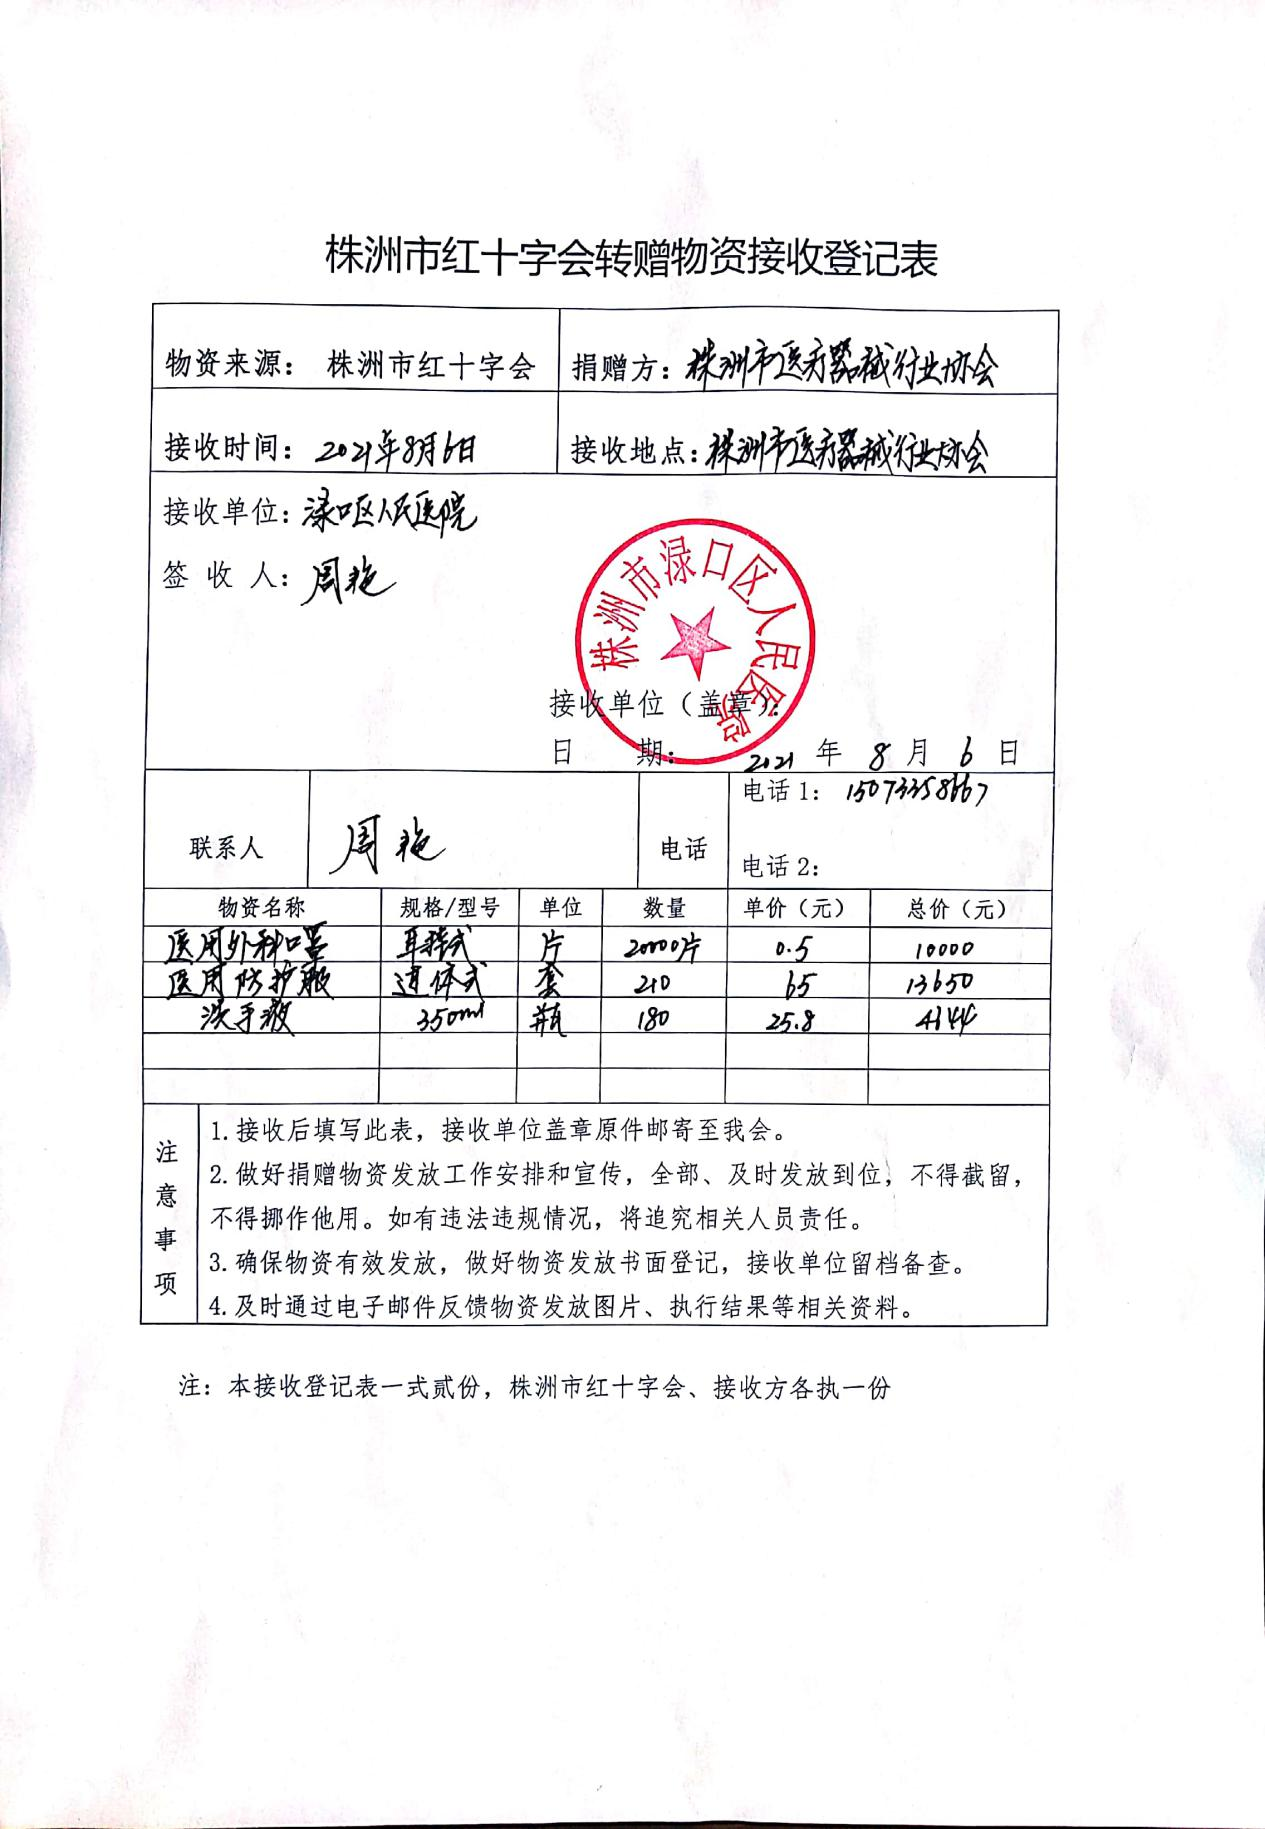 株洲市红十字会转赠物资接收登记表
物资来源： 株洲市红十字会 捐赠方：株洲市医疗器械行业协会
接收时间：2021年8月6日 接收地点：株洲市医疗器械行业协会
接收单位：渌口区人民医院
签 收 人：周艳
株洲市渌口区人民医院
接收单位（盖章）：
日 期： 2021 年 8 月 6 日
联系人 周艳 电话 电话1：15073358667
电话2：
物资名称 规格/型号 单位 数量 单价（元） 总价（元）
医用外科口罩 耳挂式 片 20000片 0.5 10000
医用防护服 连体式 套 210 65 13650
洗手液 350ml 瓶 180 25.8 4644
注意事项
1.接收后填写此表，接收单位盖章原件邮寄至我会。
2.做好捐赠物资发放工作安排和宣传，全部、及时发放到位，不得截留，
不得挪作他用。如有违法违规情况，将追究相关人员责任。
3.确保物资有效发放，做好物资发放书面登记，接收单位留档备查。
4.及时通过电子邮件反馈物资发放图片、执行结果等相关资料。
注：本接收登记表一式贰份，株洲市红十字会、接收方各执一份